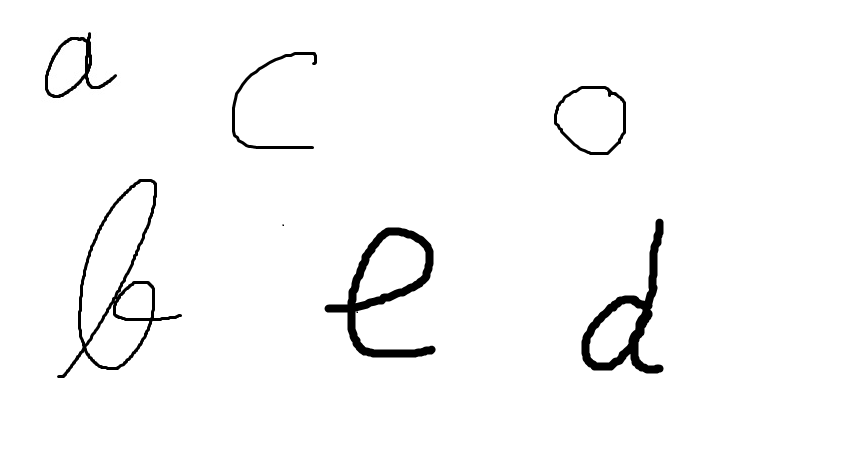 a c o
b e d